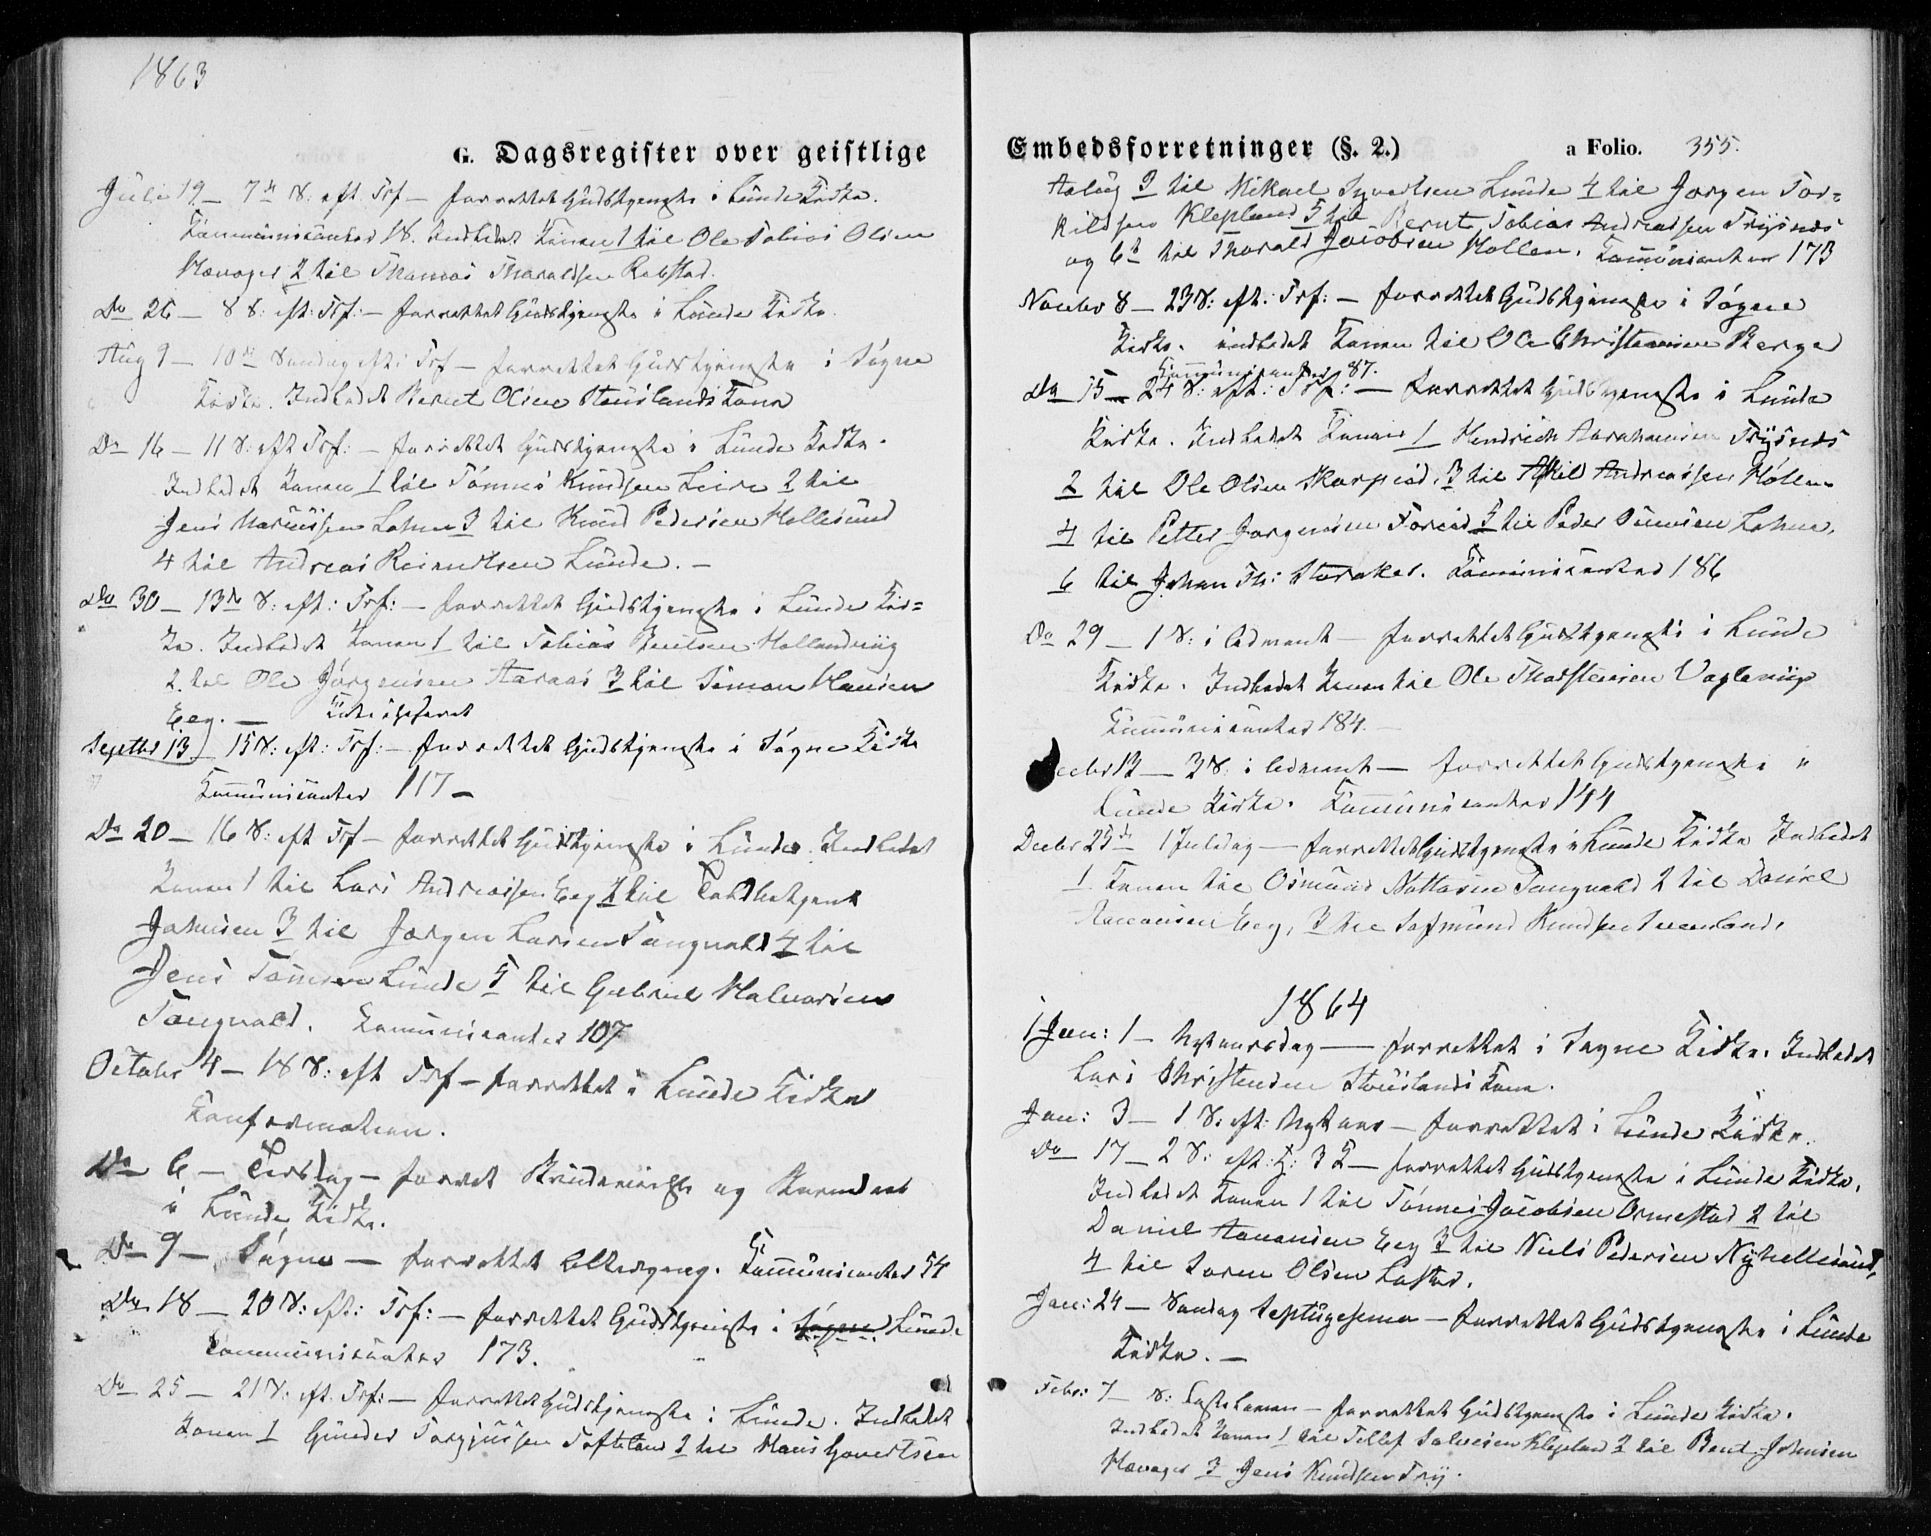 1863
G. Dagsregister over geistlige
Juli 19 – 7de S: eft Trf – forrettet Gudstjeneste i Lunde Kirke.
Kommunicanter 18. Indledet Konen 1 til Ole Tobias Olsen
Høvager 2 til Thomas Tharaldsen Repstad.
Do 26 – 8 S: eft: Trf: – forrettet Gudstjeneste i Lunde Kirke.
Aug 9 – 10de Søndag eft: Trf – forrettet Gudstjeneste i Søgne
Kirke. Indledet Bernt Olsen Stauslands Kone
Do 16 – 11 S: eft Trf: – forrettet Gudstjeneste i Lunde Kirke.
Indledet Konen 1 til Tønnes Knudsen Leire 2 til
Jens Marcussen Lohne 3 til Knud Pedersen Hellesund
4 til Andreas Reinertsen Lunde. –
Do 30 – 13de S: eft: Trf: – forrettet Gudstjeneste i Lunde Kir=
ke. Indledet Konen 1 til Tobias Hollandsvig
2 til Ole Jørgensen Aaraas 3 til Simon Hansen
Eeg. –
Septbr 13 – 15 S: eft: Trf: – forrettet Gudstjeneste i Søgne Kirke
Kommunicanter 117 –
Do 20 – 16 S: eft Trf – forrettet Gudstjeneste i Lunde. Indledet
Konen 1 til Lars Andreassen Eeg 2 til
Johnsen 3 til Jørgen Larsen Tangvald 4 til
Jens Lunde 5 til Gabriel Halvorsen
Tangvald. Communicanter 107
October 4 – 18 S: eft Trf – forrettet i Lunde Kirke
Confirmation.
Do 6 – Tirsdag – forret og
i Lunde Kirke.
Do 9 – Søgne – forrettet Altergang. Kommunicanter 54
Do 18 – 20 S: eft: Trf: – forrettet Gudstjeneste i Søgne Lunde
Communicanter 173.
Do 25 – 21 S: eft. Trf: – forrettet Gudstjeneste i Lunde. Indledet
Konen 1 Gunder Torgjussen Tofteland 2 til Hans Govertsen
Embedsforretninger (§. 2.) a Folio. 355.
3 til Mikael Syvertsen Lunde 4 til Jørgen Tor=
kildsen Klepland 5 til Bernt Tobias Andreassen Trysnes
og 6te til Tharald Jacobsen Høllen. Communicanter 173
Novbr 8 – 23 S: eft: Trf: – forrettet Gudstjeneste i Søgne
Kirke. indledet Konen til Ole Christensen Berge
Communicanter 87.
Do 15 – 24 S: eft: Trf: – forrettet Gudstjeneste i Lunde
Kirke. Indledet Konen 1 Hendrich Abrahamsen Trysnes
2 til Ole Olsen 3 til Askild Andreassen Høllen
4 til Petter Jørgensen 5 til Peder Lohne,
6 til Johan Th: Storaker. Communicanter 186
Do 29 – 1 S: i Advent – forrettet Gudstjeneste i Lunde
Kirke. Indledet Konen til Ole Thorstensen
Communicanter 184. –
Decbr 13 – 3 S: i Advent – forrettet Gudstjeneste i
Lunde Kirke. Communicanter 144
Decbr 25de 1 Juledag – forrettet Gudstjeneste i Lunde Kirke Indledet
1 Konen til Osmund Tangvald 2 til Daniel
Aanonsen Eeg, 3 til Knudsen
1864
Jan: 1 – Nytaarsdag – forrettet i Søgne Kirke. Indledet
Lars Christensen Stauslands Kone.
Jan: 3 – 1 S. eft: Nytaar – forrettet i Lunde Kirke.
Do 17 – 2 S: eft: H: 3 K – forrettet Gudstjeneste i Lunde Kirke.
Indledet Konen 1 til Tønnes Jacobsen Ormestad 2 til
Daniel Aanonsen Eeg 3 til Niels Pedersen Nyhellesund,
4 til Søren Olsen Lastad.
Jan: 24 – Søndag Septugesima – forrettet Gudstjeneste i Lunde
Kirke. –
Febr: 7 – S: Fastelavn – forrettet Gudstjeneste i Lunde Kirke.
Indledet Konen 1 til Tellef Salvesen Klepland 2 til Bent Johnsen
Høvager 3 Jens Knudsen Try.